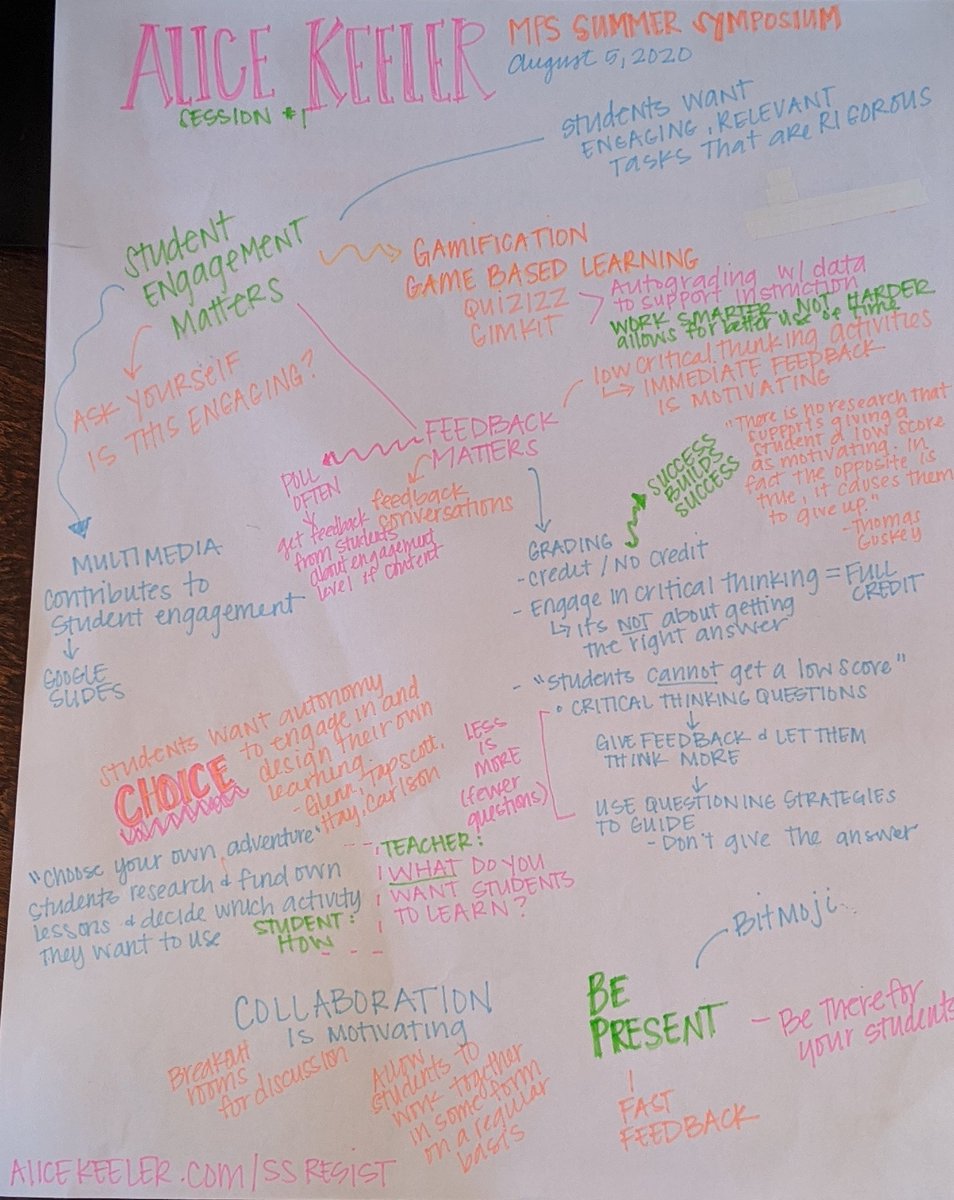 ALICE KEELER
MPS SUMMER SYMPOSIUM
August 5, 2020
SESSION #1
Students want
ENGAGING, RELEVANT
TASKS That are RIGOROUS
Student
ENGAGEMENT
Matters
GAMIFICATION
GAME BASED LEARNING
QUIZIZZ
GIMKIT
Autograding w/ data
to support instruction
WORK SMARTER NOT HARDER
allows for better use of time
ASK YOURSELF
IS THIS ENGAGING?
low critical thinking activities
↳ IMMEDIATE FEEDBACK
IS MOTIVATING
FEEDBACK
MATTERS
POLL
OFTEN
get feedback
from students
about engagement
level if content
feedback
conversations
SUCCESS
BUILDS
SUCCESS
"There is no research that
supports giving a
student a low score
as motivating. in
fact the opposite is
true, it causes them
to give up."
- Thomas
Guskey
MULTIMEDIA
contributes to
Student engagement
GOOGLE
SLIDES
GRADING
- credit / NO credit
- Engage in critical thinking = FULL
CREDIT
↳ it's NOT about getting
the right answer
- "Students cannot get a low score"
• CRITICAL THINKING QUESTIONS
GIVE FEEDBACK & LET THEM
THINK MORE
USE QUESTIONING STRATEGIES
TO GUIDE
- Don't give the answer
LESS
IS
MORE
(fewer
questions)
Students want autonomy
CHOICE to engage in and
design their own
learning.
- Glenn, Tapscott,
Hay, Carlson
"Choose your own adventure"
Students research & find own
lessons & decide which activity
They want to use
STUDENT:
HOW
TEACHER:
WHAT DO YOU
WANT STUDENTS
TO LEARN?
COLLABORATION
IS Motivating
Breakout
rooms
for discussion
Allow
students to
work together
in some form
on a regular
basis
Bitmoji
BE
PRESENT
- Be There for
your students
FAST
FEEDBACK
ALICEKEELER.COM/SSRESIST